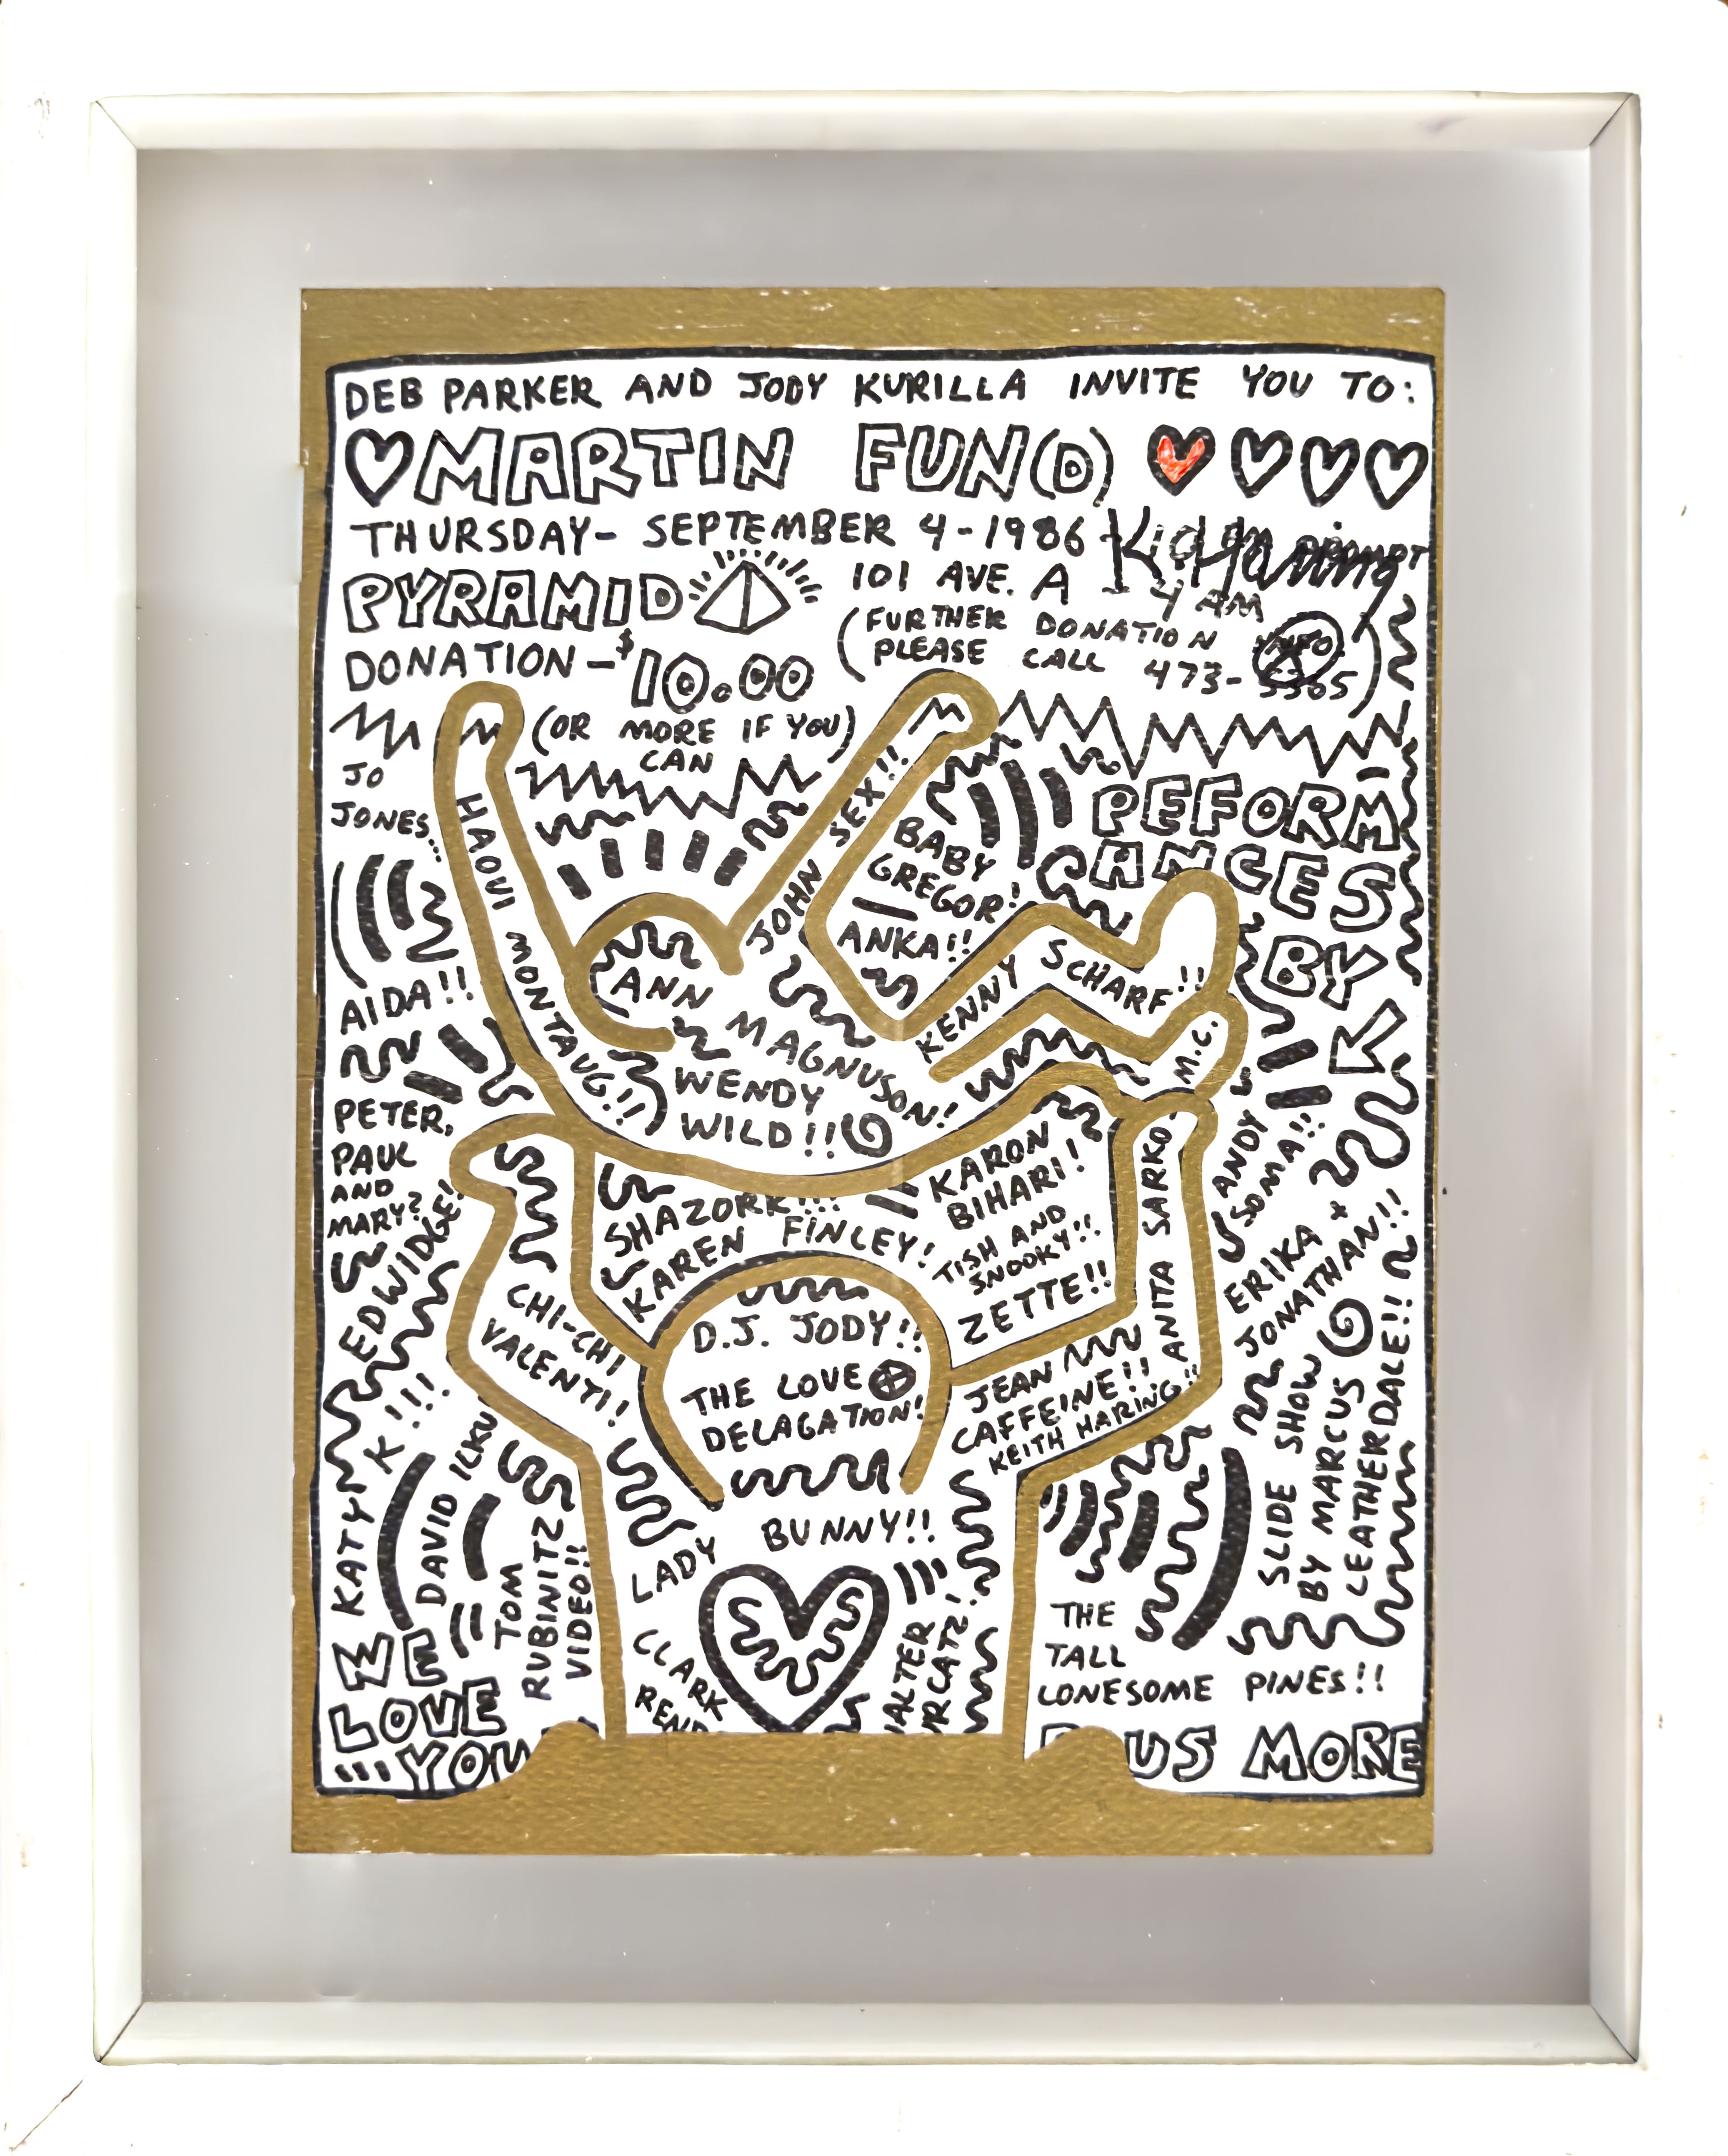 DEB PARKER AND JODY KURILLA INVITE YOU TO:
MARTIN FUN(D)
THURSDAY- SEPTEMBER 4-1986
PYRAMID
101 AVE. A - 4 AM
DONATION-$10.00
(OR MORE IF YOU)
CAN
(FURTHER DONATION INFO
PLEASE CALL 473-5365)
PEFORM
ANCES
BY
JO
JONES...
HAOUI MONTAUG!!
JOHN SEX!!
BABY
GREGOR!
ANKA!!
KENNY SCHARF!!
M.C.
ANN
MAGNUSON!
WENDY
WILD!!
AIDA!!
PETER,
PAUL
AND
MARY?
EDWIDGE!
KATY K!!!
DAVID ILKU
TOM
RUBINITZ
VIDEO!!
SHAZORK!!!
KAREN FINLEY!
KARON
BIHARI!
TISH AND
SNOOKY!!
ZETTE!!
ANITA SARKO
ANDY
SOMA!!
ERIKA +
JONATHAN!!
CHI-CHI
VALENTI!
D.J. JODY!!
THE LOVE
DELAGATION!
JEAN
CAFFEINE!!
KEITH HARING!!
SLIDE SHOW
BY MARCUS
LEATHERDALE!!
LADY BUNNY!!
CLARK
THE
TALL
LONESOME PINES!!
WE
LOVE
YOU
US MORE